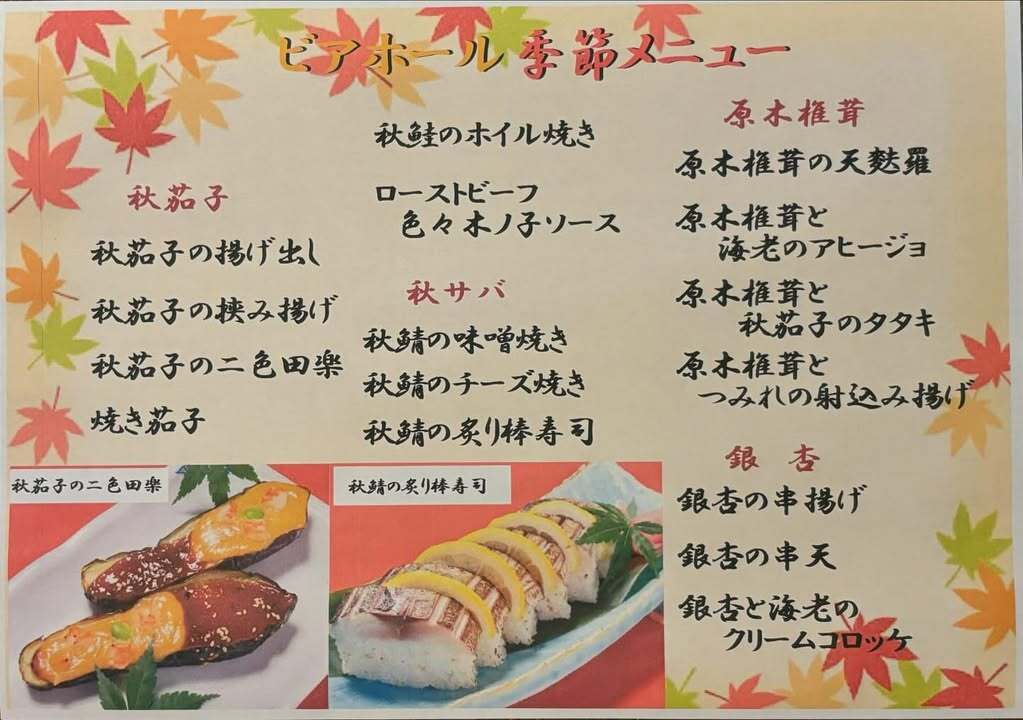 ビアホール 季節メニュー
秋茄子
秋茄子の揚げ出し
秋茄子の挟み揚げ
秋茄子の二色田楽
焼き茄子
秋鮭のホイル焼き
ローストビーフ
色々木ノ子ソース
秋サバ
秋鯖の味噌焼き
秋鯖のチーズ焼き
秋鯖の炙り棒寿司
原木椎茸
原木椎茸の天麩羅
原木椎茸と
海老のアヒージョ
原木椎茸と
秋茄子のタタキ
原木椎茸と
つみれの射込み揚げ
銀杏
銀杏の串揚げ
銀杏の串天
銀杏と海老の
クリームコロッケ
秋茄子の二色田楽
秋鯖の炙り棒寿司